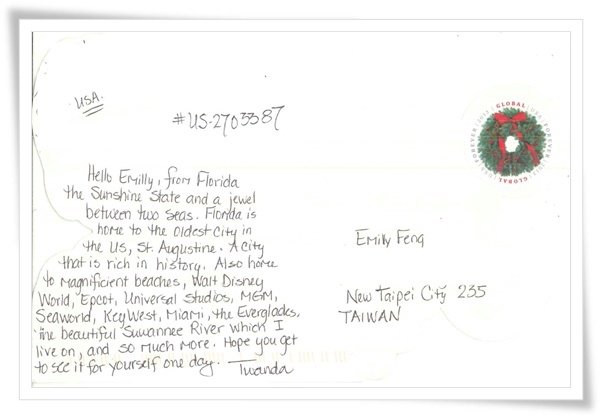 USA
#US-2703387
Hello Emilly, from Florida
the Sunshine State and a jewel
between two seas. Florida is
home to the oldest city in
the US, St. Augustine. A city
that is rich in history. Also home
to magnificient beaches, Walt Disney
World, Epcot, Universal Studios, MGM,
Seaworld, Key West, Miami, the Everglades,
the beautiful Suwannee River which I
live on, and so much more. Hope you get
to see it for yourself one day. Twanda
GLOBAL
FOREVER
Emily Feng
New Taipei City 235
TAIWAN